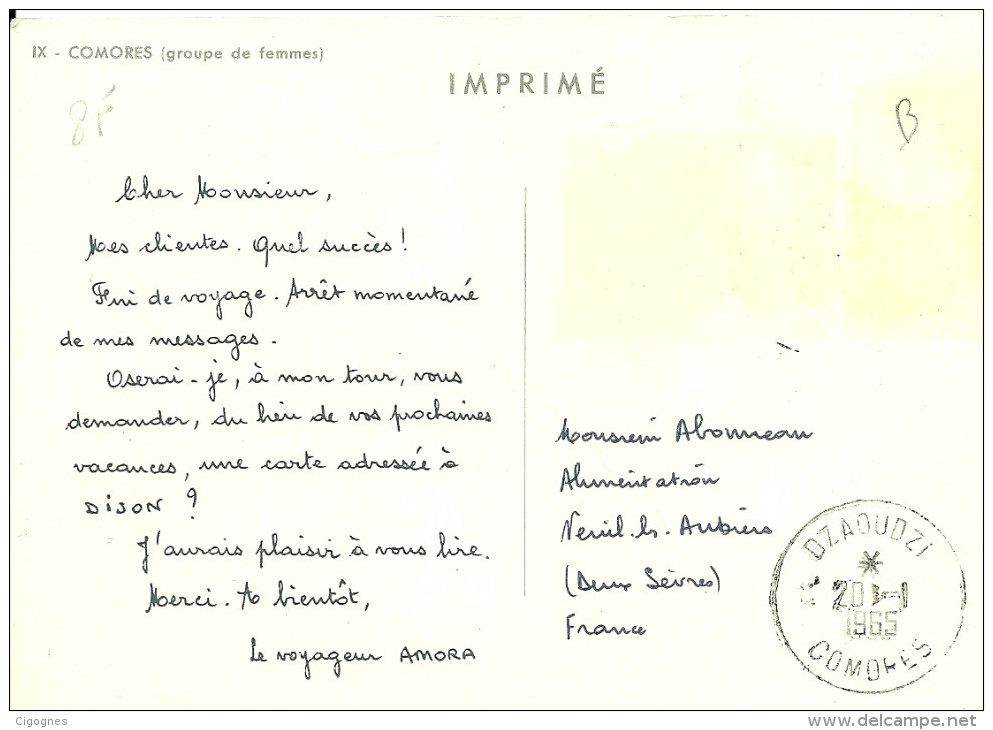 IX - COMORES (groupe de femmes)
IMPRIMÉ
8F
B
Cher Monsieur,
Mes clientes. Quel succès !
Fini de voyage. Arrêt momentané
de mes messages.
Oserai-je, à mon tour, vous
demander, du lieu de vos prochaines
vacances, une carte adressée à
DIJON ?
J'aurais plaisir à vous lire.
Merci. A bientôt,
Le voyageur AMORA
Monsieur Abonneau
Alimentation
Nueil. les. Aubiers
(Deux Sèvres)
France
DZAOUDZI
20 -1
1965
COMORES
Cigognes
www.delcampe.net